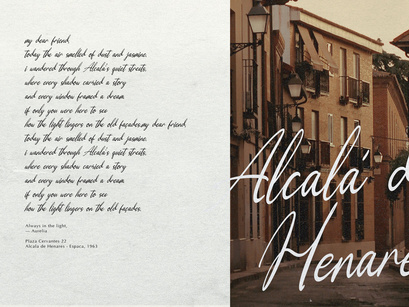 my dear friend,
today the air smelled of dust and jasmine.
i wandered through Alcalá's quiet streets,
where every shadow carried a story
and every window framed a dream.
if only you were here to see
how the light lingers on the old facades.my dear friend,
today the air smelled of dust and jasmine.
i wandered through Alcalá's quiet streets,
where every shadow carried a story
and every window framed a dream.
if only you were here to see
how the light lingers on the old facades.
Always in the light,
— Aurelia
Plaza Cervantes 22
Alcalá de Henares - Espaca, 1963
Alcalá d
Henare